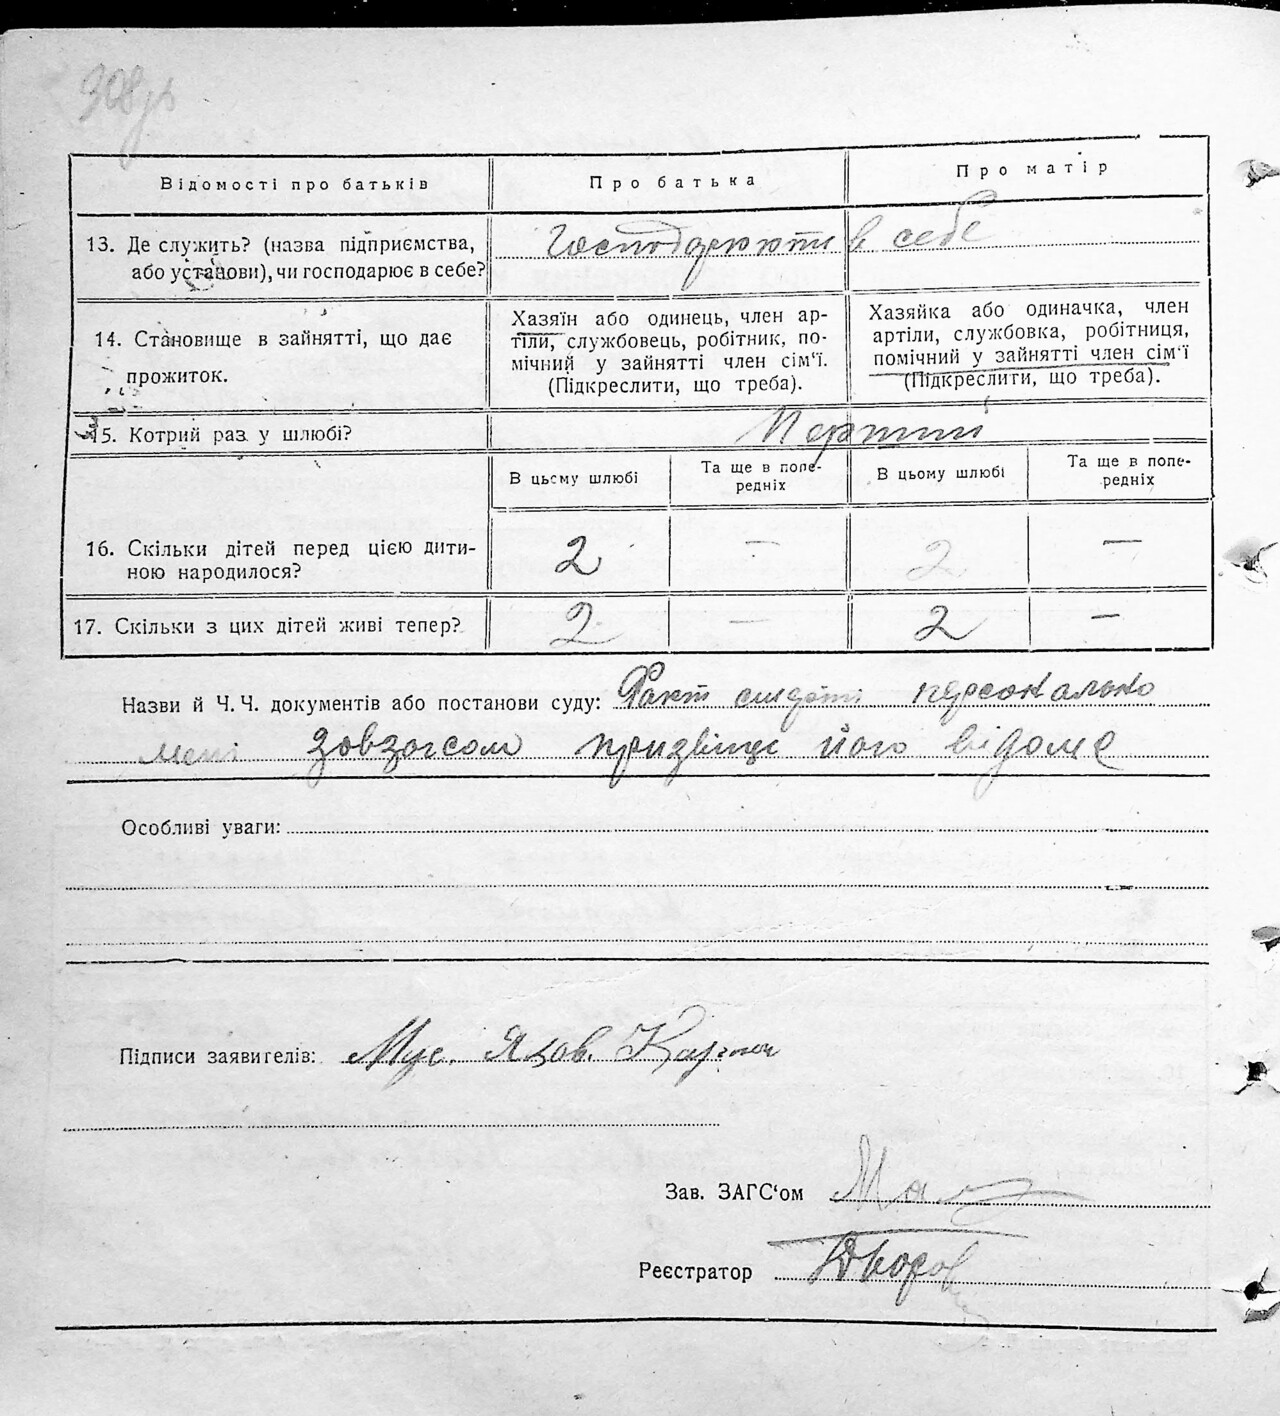 308
Відомості про батьків
Про батька
Про матір
13. Де служить? (назва підприємства,
або установи), чи господарює в себе?
Господарюють в себе
14. Становище в зайнятті, що дає
прожиток.
Хазяїн або одинець, член ар-
тіли, службовець, робітник, по-
мічний у зайнятті член сім'ї.
(Підкреслити, що треба).
Хазяйка або одиначка, член
артіли, службовка, робітниця,
помічний у зайнятті член сім'ї
(Підкреслити, що треба).
15. Котрий раз у шлюбі?
Перший
В цьому шлюбі
Та ще в попе-
редніх
В цьому шлюбі
Та ще в попе-
редніх
16. Скільки дітей перед цією дити-
ною народилося?
2 — 2 —
17. Скільки з цих дітей живі тепер?
2 — 2 —
Назви й Ч.Ч. документів або постанови суду: Факт персонально
мені Завзагсом призвіще його відоме
Особливі уваги:
Підписи заявителів: Мус. Яков.
Зав. ЗАГС'ом
Реєстратор